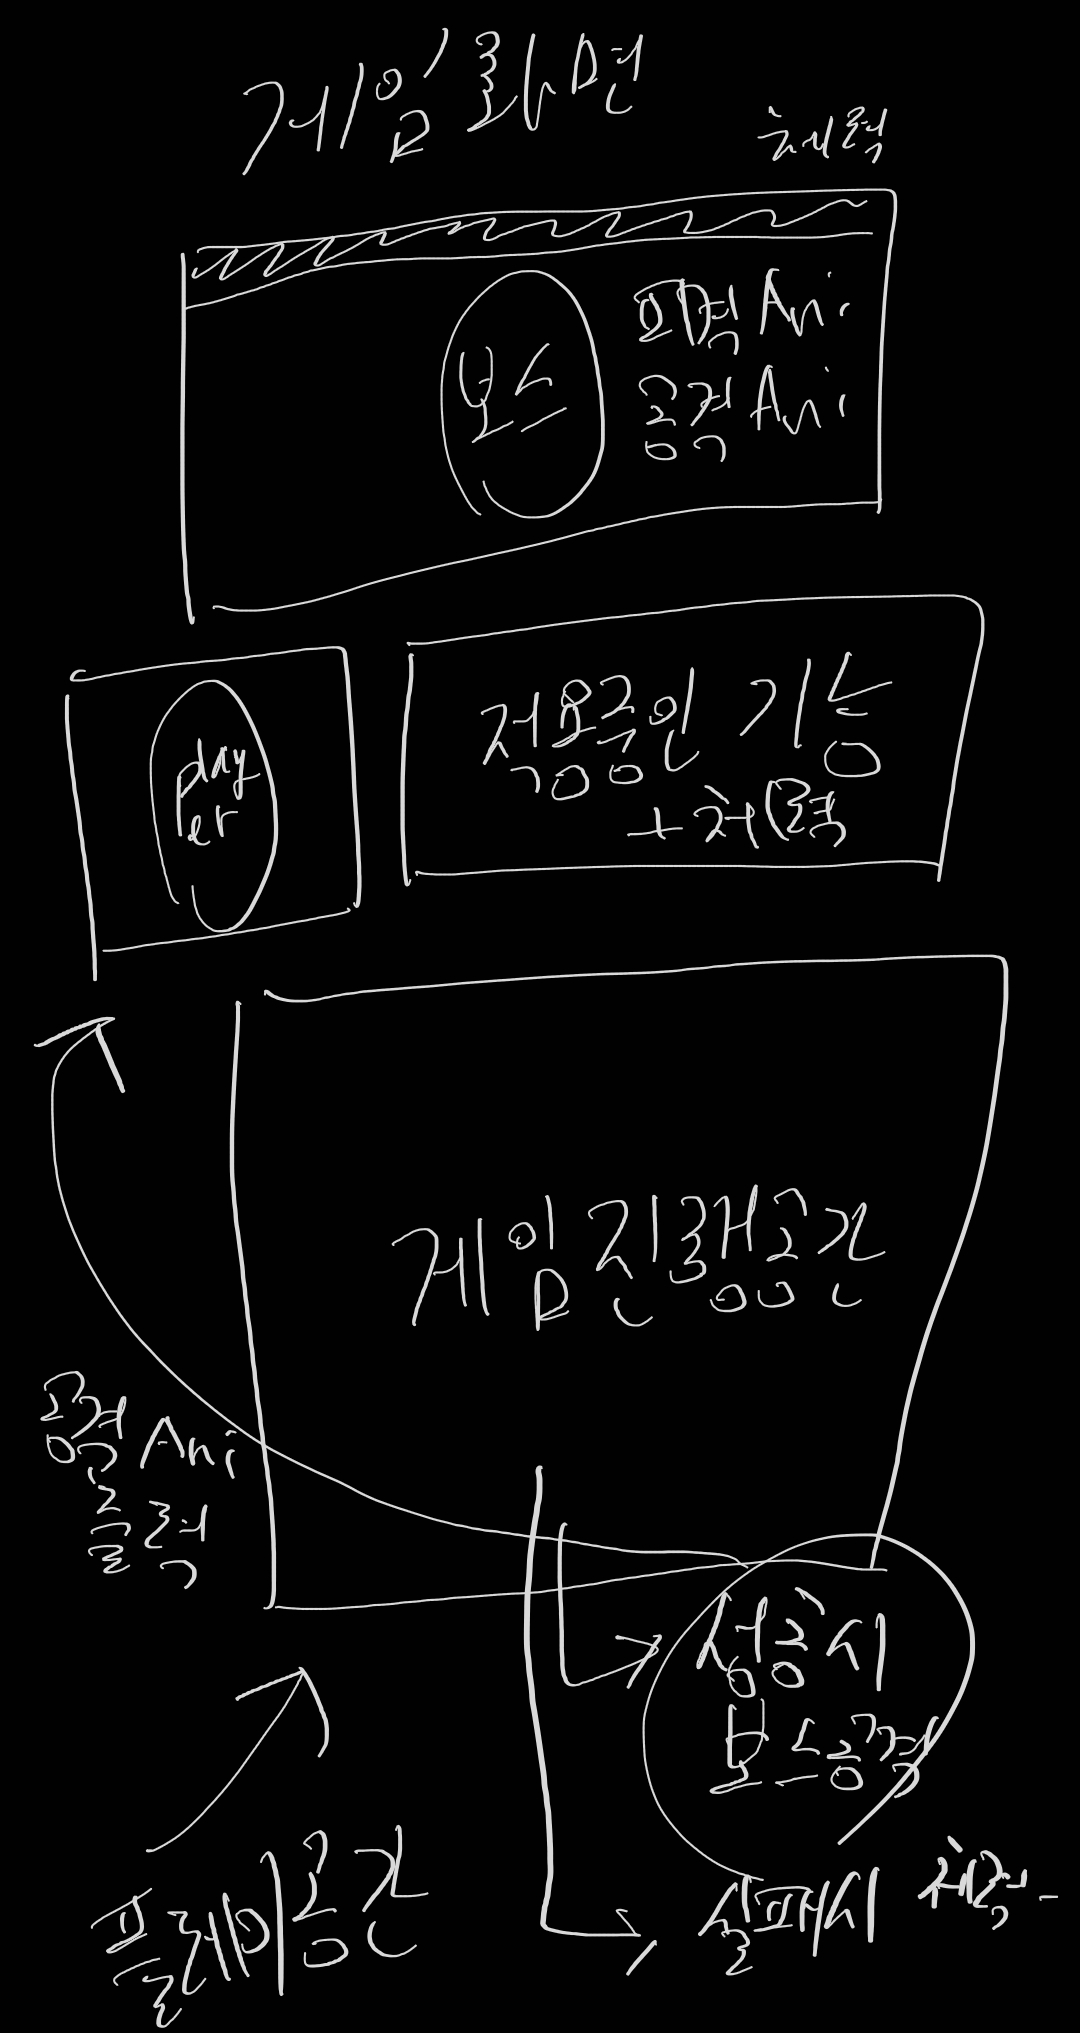 게임화면
체력
보스
피격 Ani
공격 Ani
play
er
적용중인 기능
+ 체력
게임진행공간
공격 Ani
출력
성공시
보스공격
실패시 체력 -
플레이공간